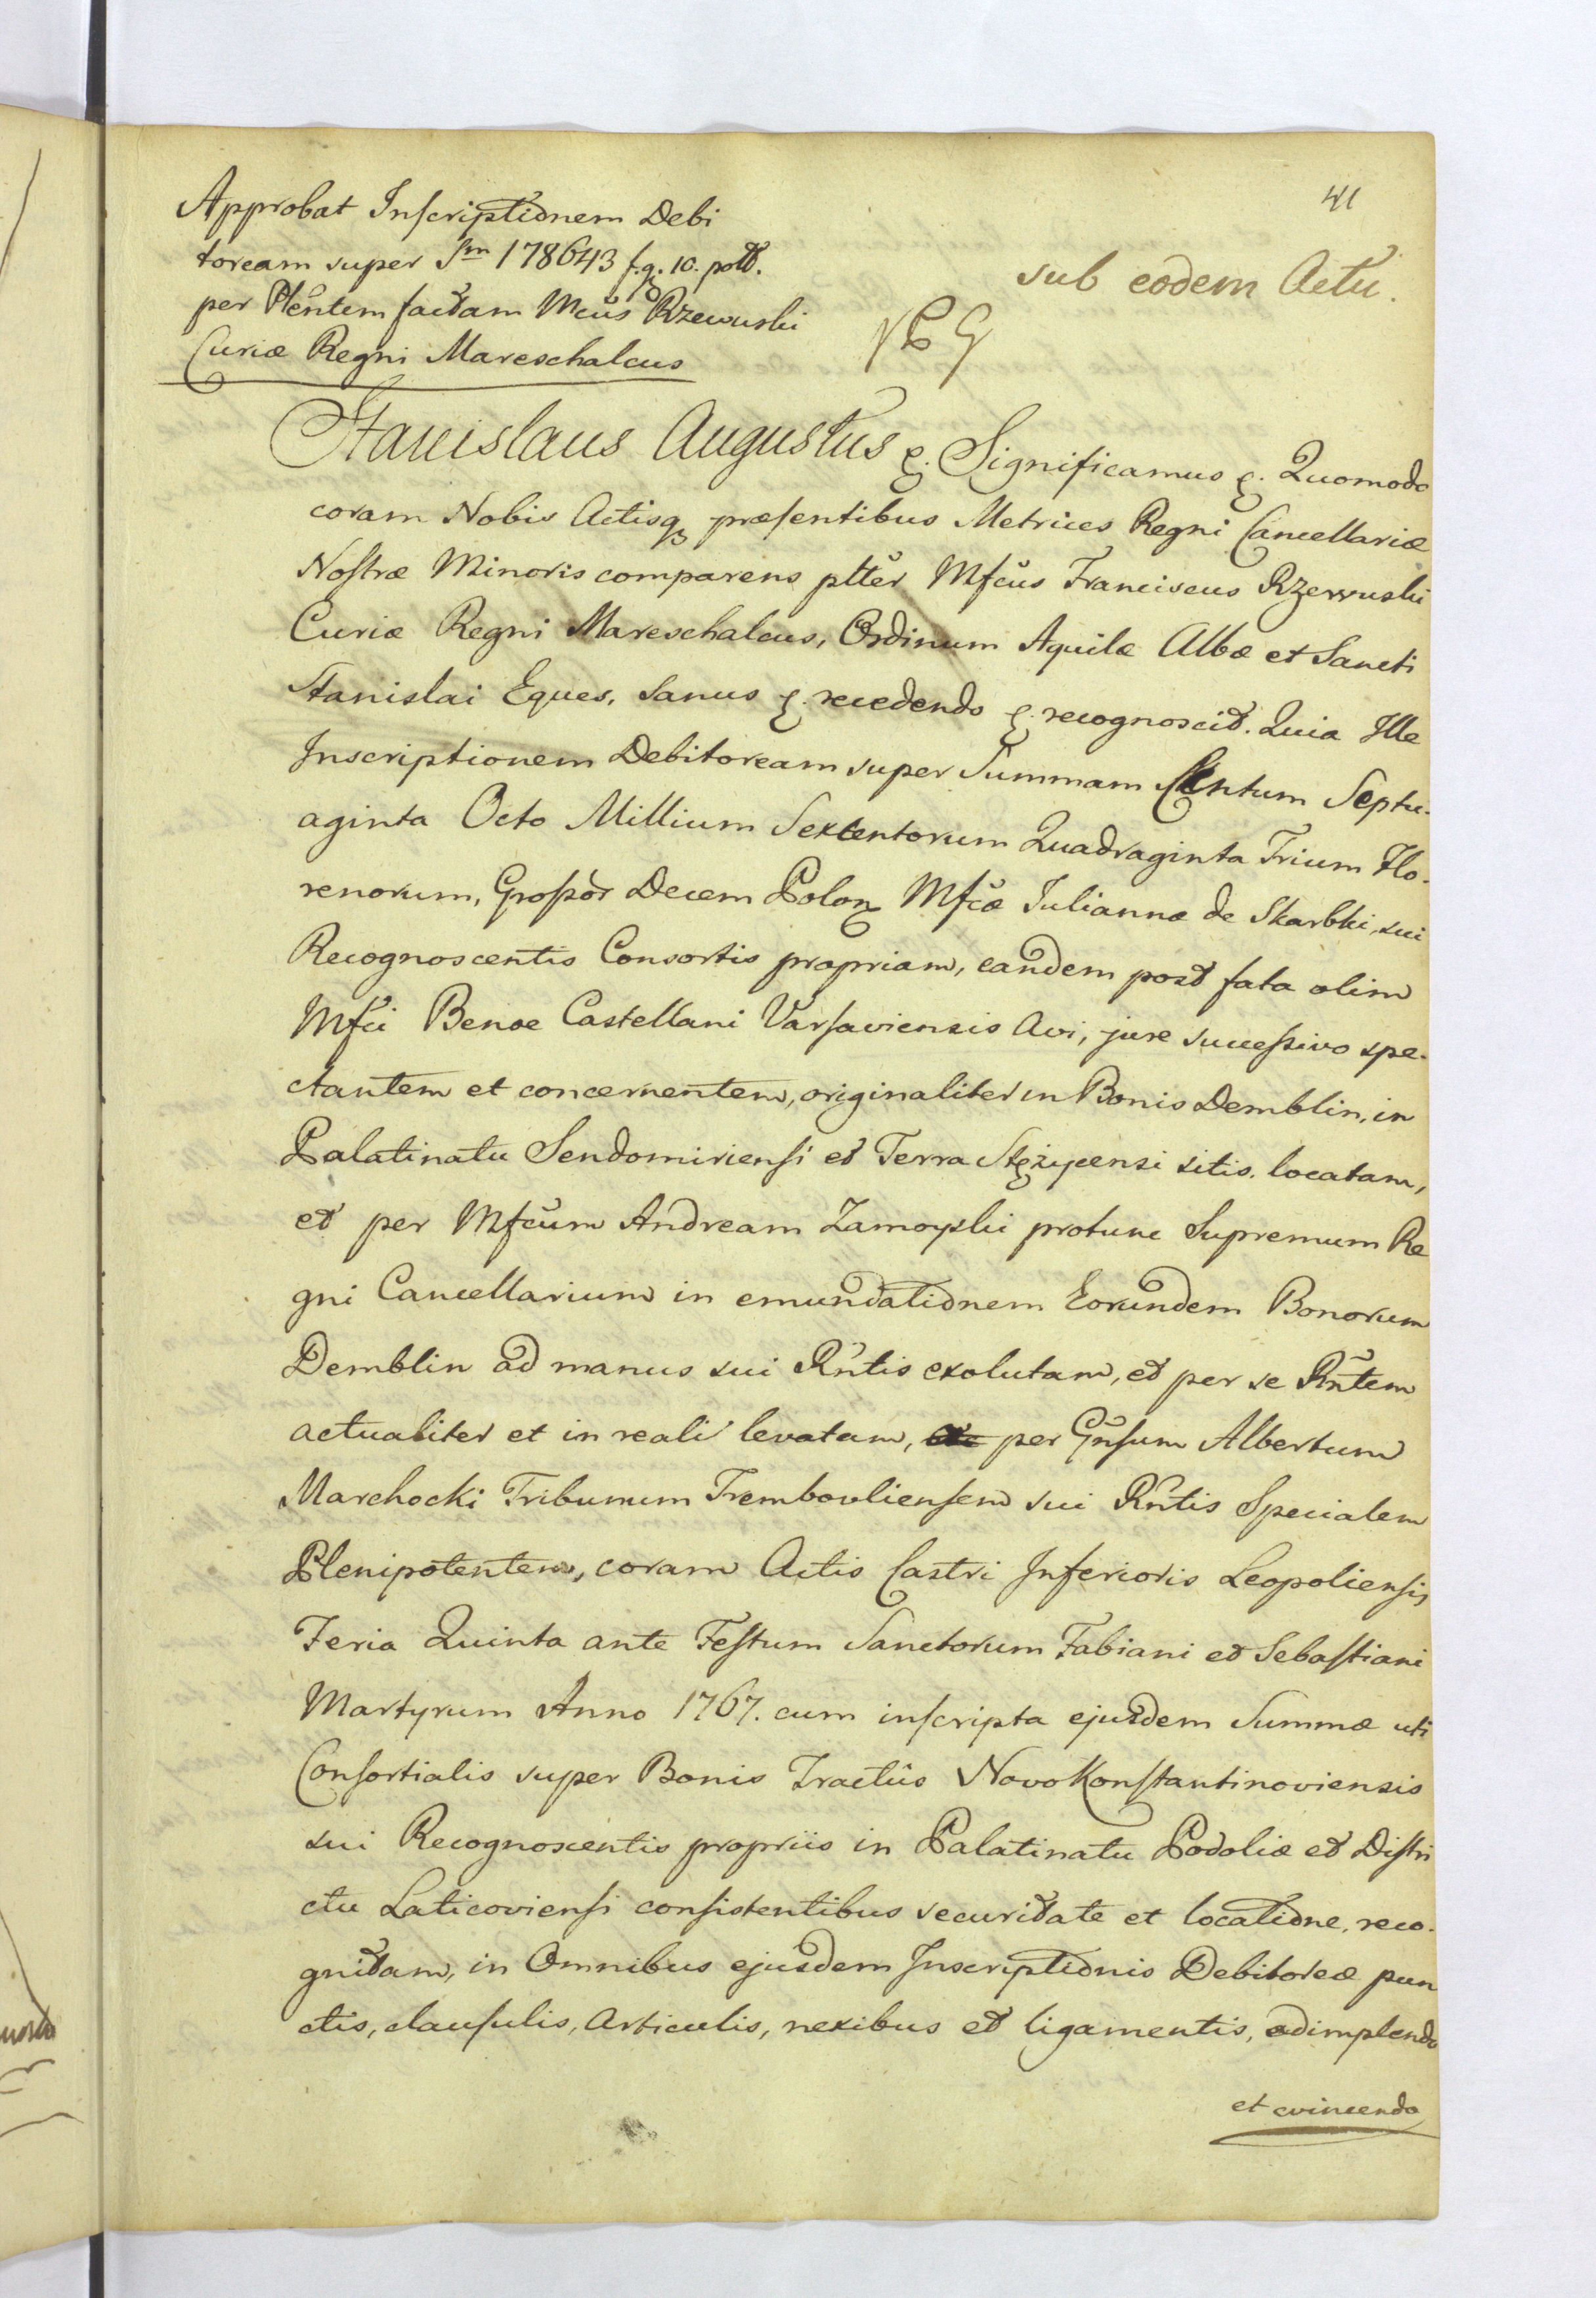 41
Approbat Inscriptionem Debi
toream super Sm 178643 f. g. 10. poll.
per Plentem factam Mcus Rzewuski
Curiæ Regni Mareschalcus
sub eodem Actu.
Stanislaus Augustus &. Significamus &. Quomodo
coram Nobis Actisq præsentibus Metrices Regni Cancellariæ
Nostræ Minoris comparens plter Mfcus Franciscus Rzewuski
Curiæ Regni Mareschalcus, Ordinum Aquilæ Albæ et Sancti
Stanislai Eques, Sanus &. recedendo &. recognoscit. Quia Ille
Inscriptionem Debitoream super Summam Centum Septu-
aginta Octo Millium Sexcentorum Quadraginta Trium Flo-
renorum, Grossor Decem Polon Mfcæ Juliannæ de Skarbki, sui
Recognoscentis Consortis propriam, eandem post fata olim
Mfci Benoe Castellani Varsaviensis Avi, jure successivo spe-
ctantem et concernentem, originaliter in Bonis Demblin, in
Palatinatu Sendomiriensi et Terra Stężycensi sitis. locatam,
et per Mfcum Andream Zamoyski protunc Supremum Re
gni Cancellarium in emundationem Eorundem Bonorum
Demblin ad manus sui Rntis exolutam, et per se Rntem
actualiter et in reali levatam, per Gnsum Albertum
Marchocki Tribunum Trembowliensem sui Rntis Specialem
Plenipotentem, coram Actis Castri Inferioris Leopoliensis
Feria Quinta ante Festum Sanctorum Fabiani et Sebastiani
Martyrum Anno 1767. cum inscripta ejusdem Summæ uti
Consortialis super Bonis Tractûs NovoKonstantinoviensis
sui Recognoscentis propriis in Palatinatu Podoliæ et Distri
ctu Laticoviensi consistentibus securitate et locatione, reco-
gnitam, in Omnibus ejusdem Inscriptionis Debitoreæ pun
ctis, clausulis, Articulis, nexibus et ligamentis, adimplendo
et evincendo